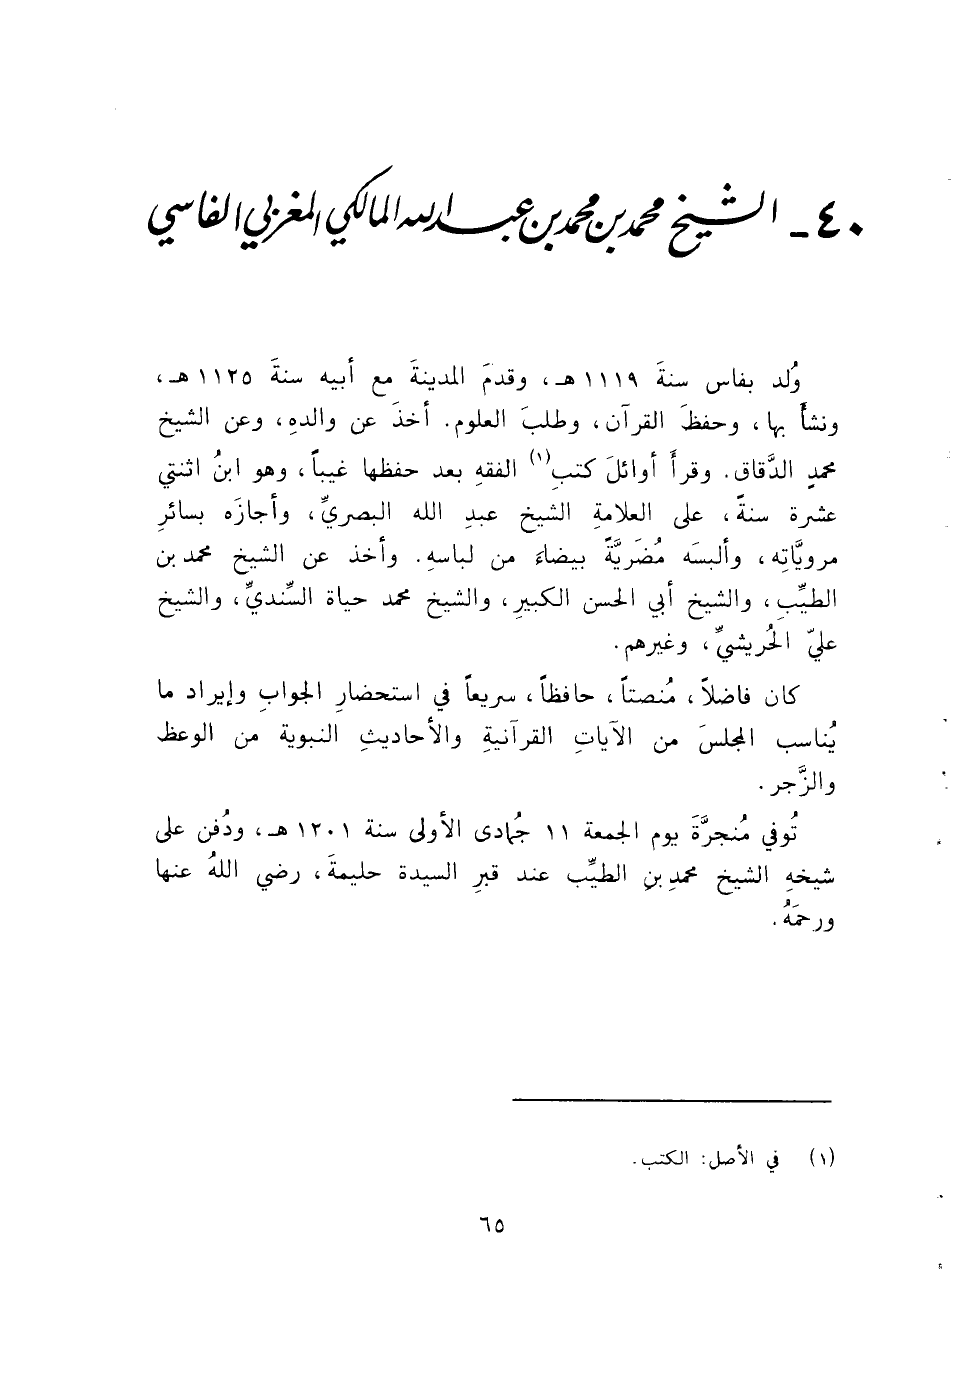 ٤٠ - الشيخ محمد بن محمد بن عبد الله المالكي المغربي الفاسي
وُلد بفاس سنةَ ١١١٩ هـ، وقدمَ المدينةَ مع أبيه سنةَ ١١٢٥ هـ،
ونشأَ بها، وحفظَ القرآن، وطلبَ العلوم. أخذَ عن والدهِ، وعن الشيخ
محمدٍ الدَّقاق. وقرأَ أوائلَ كتبِ(١) الفقهِ بعد حفظها غيباً، وهو ابنُ اثنتي
عشرة سنةً، على العلامةِ الشيخ عبدِ الله البصريِّ، وأجازَه بسائرِ
مرويَّاتِه، وألبسَه مُضَريَّةً بيضاءَ من لباسهِ. وأخذ عن الشيخ محمد بن
الطيِّبِ، والشيخ أبي الحسن الكبيرِ، والشيخ محمد حياة السِّنديِّ، والشيخ
عليّ الحُريشيِّ، وغيرهم.
كان فاضلاً، مُنصتاً، حافظاً، سريعاً في استحضارِ الجوابِ وإيراد ما
يُناسب المجلسَ من الآياتِ القرآنيةِ والأحاديثِ النبوية من الوعظ
والزَّجر.
تُوفي مُنجرَّةَ يوم الجمعة ١١ جُمادى الأولى سنة ١٢٠١ هـ، ودُفن على
شيخهِ الشيخ محمدِ بنِ الطيِّب عند قبرِ السيدة حليمةَ، رضي اللهُ عنها
ورحمَهُ.
(١) في الأصل: الكتب.
٦٥